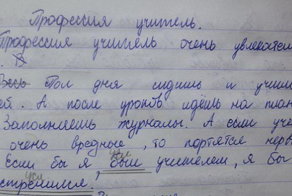 Профессия учитель.
Профессия учитель очень увлекател
Весь Пол дня сидишь и учиш
ей. А после уроков идёшь на план
Заполняешь журналы. А если уче
очень вредные, то портятся нерв
Если бы я был учителем, я бы
устремился